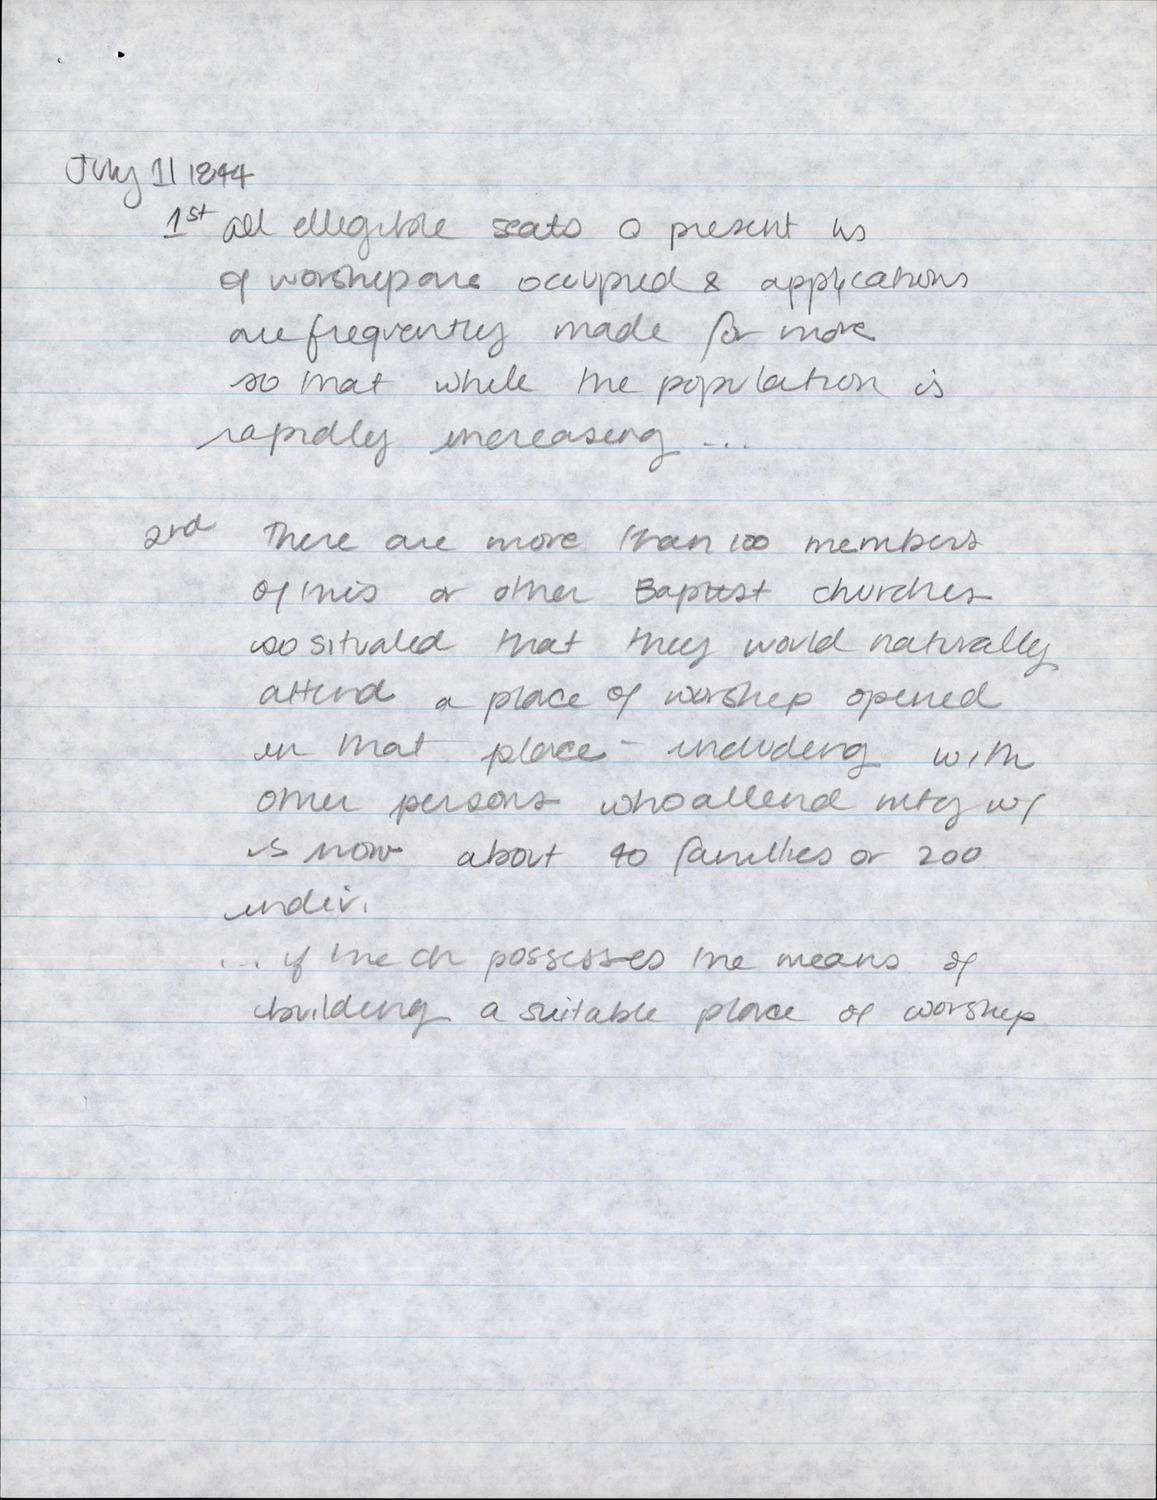 July 11 1844
1st all ellegible seats @ present hs
of worship are occupied & applications
are frequently made for more
so that while the population is
rapidly increasing ...
2nd There are more than 100 members
of this or other Baptist churches
so situated that they would naturally
attend a place of worship opened
in that place - including with
other persons who attend mtg w/
is now about 40 families or 200
indiv.
... if the ch possesses the means of
building a suitable place of worship